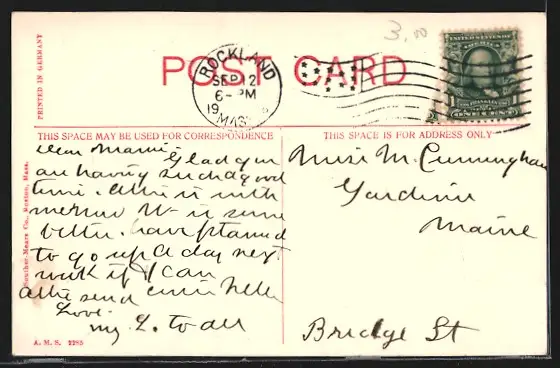 3.00
POST CARD
ROCKLAND
SEP 12
6-PM
19
MASS
UNITED STATES OF AMERICA
ONE CENT
PRINTED IN GERMANY
THIS SPACE MAY BE USED FOR CORRESPONDENCE
THIS SPACE IS FOR ADDRESS ONLY
Dear
Glad you
are having such a good
time.
better. have planned
to go up a day next
week if I can
send
Love.
my L. to all
Miss M. Cunningham
Gardiner
Maine
Bridge St
Souther-Mears Co., Boston, Mass.
A. M. S. 2285